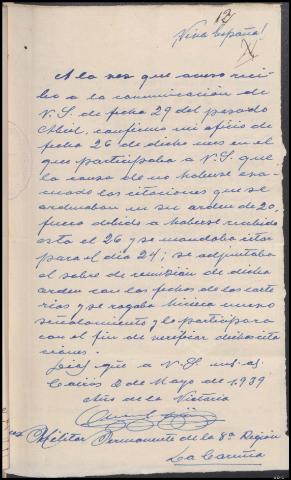 12
Viva España!
A la vez que acuso reci-
bo a la comunicación de
V.S. de fecha 29 del pasado
Abril, confirmo mi oficio de
fecha 26 de dicho mes en el
que participaba a V.S. que
la causa de no haberse eva-
cuado las citaciones que se
ordenaban en su orden de 20,
fuera debido a haberse recibido
esta el 26 y se mandaba citar
para el dia 24; se adjuntaba
el sobre de remisión de dicha
orden con las fechas de las carte-
rias y se rogaba hiciera nuevo
señalamiento y lo participara
con el fin de verificar dichas cita
ciones.
Dios gue a V.S. ms. as.
2 de Mayo de 1939
Año de la Victoria
Militar Permanente de la 8ª Región
La Coruña